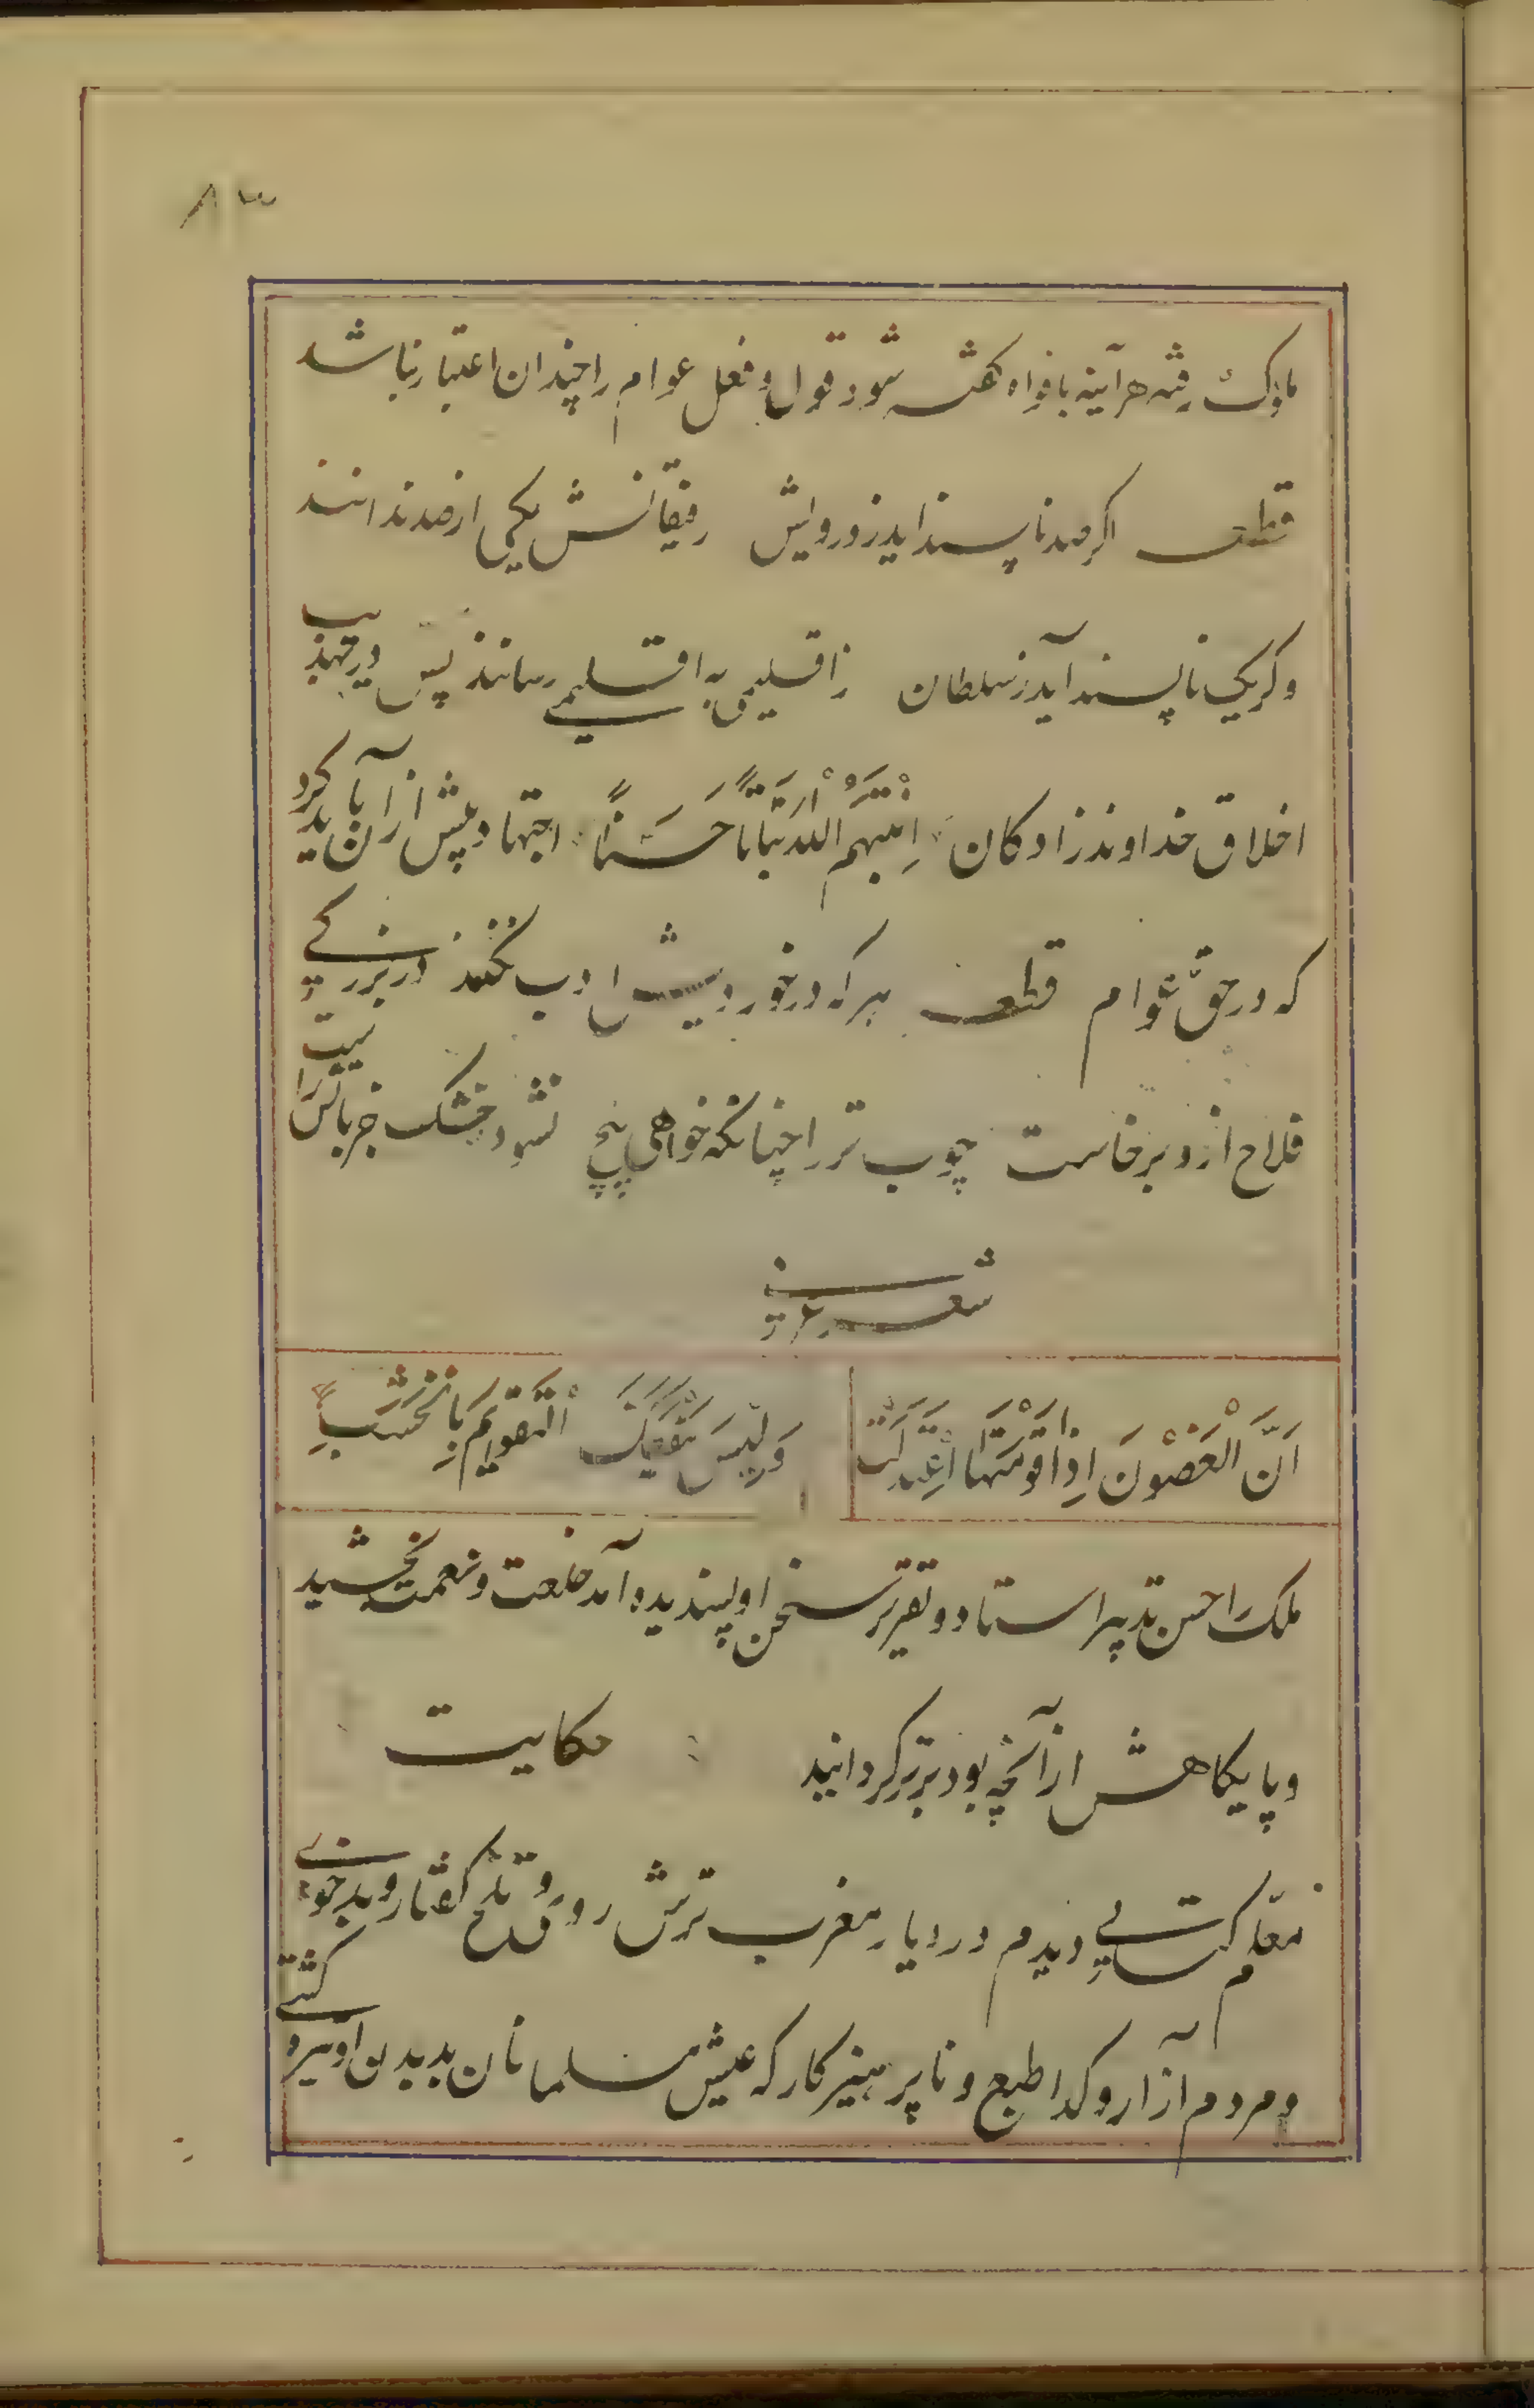 ۸۳
ملوک رفته هر آینه بافواه گفته شود و قول و فعل عوام را چندان اعتبار نباشد
قطعه اگر صد ناپسند آید ز درویش رفیقانش یکی از صد ندانند
وگر یک ناپسند آید ز سلطان ز اقلیمی به اقلیمی رسانند پس در تهذیب
اخلاق خداوند زادکان اَنْبَتَهُمُ اللّٰهُ نَبَاتاً حَسَناً اجتهاد بیش از آن باید کرد
که در حق عوام قطعه هر که در خوردیش ادب نکنند در بزرگی
فلاح ازو برخاست چوب تر را چنانکه خواهی پیچ نشود خشک جز بآتش راست بیت
شعر عربی
اِنَّ الْغُصُوْنَ اِذَا قَوَّمْتَهَا اعْتَدَلَتْ وَلَیْسَ یَنْفَعُکَ التَّقْوِیْمُ بِالْخَشَبِ
ملک را حسن تدبیر استاد و تقریر سخن او پسندیده آمد خلعت و نعمت بخشید
و پایکاهش از آنچه بود برتر کردانید حکایت
معلم کتابی دیدم در دیار مغرب ترش روی و تلخ گفتار و بدخوی
و مردم آزار و کدا طبع و ناپرهیزکار که عیش مسلمانان بدیدن او تیره کشتی